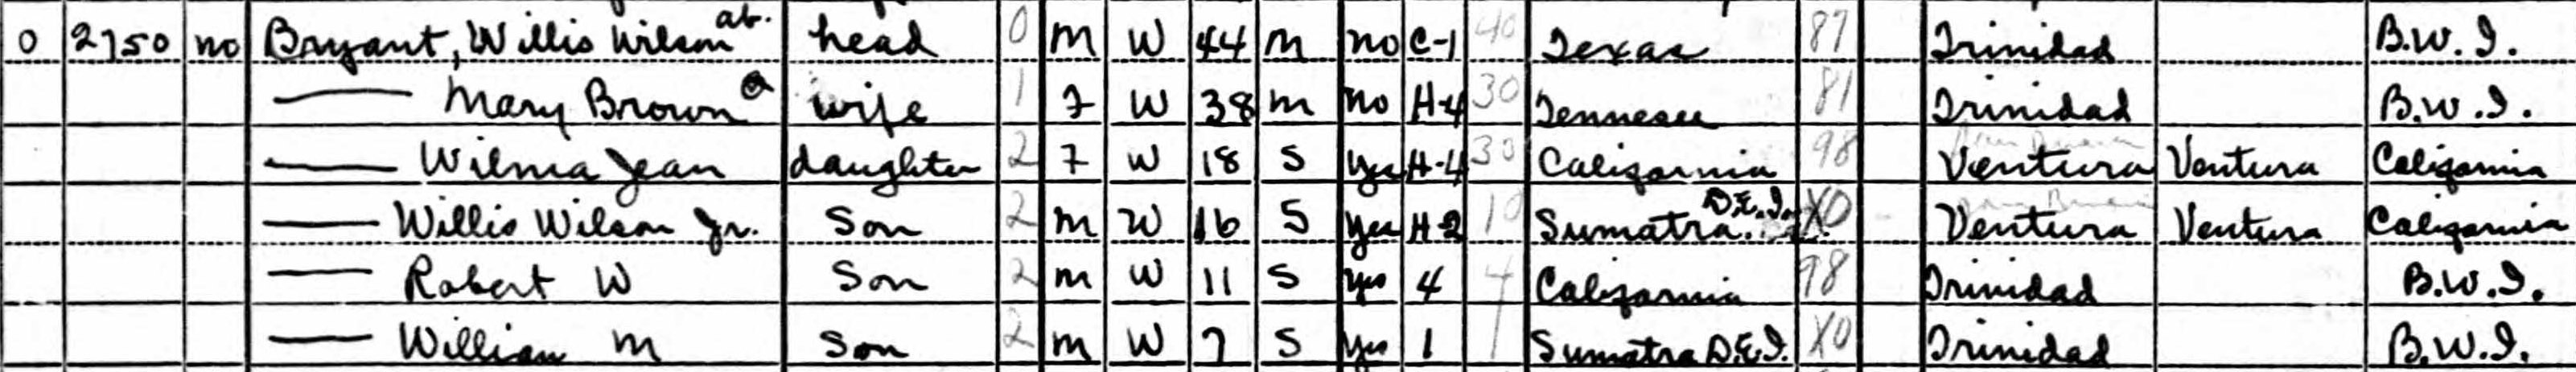 0 2750 no Bryant, Willis Wilson ab. head 0 M W 44 M no C-1 40 Texas 87 Trinidad B.W.I.
— Mary Brown wife 1 F W 38 M no H-4 30 Tennessee 81 Trinidad B.W.I.
— Wilma Jean daughter 2 F W 18 S yes H-4 30 California 98 Ventura Ventura California
— Willis Wilson Jr. Son 2 M W 16 S yes H-2 10 Sumatra D.E.I. X0 Ventura Ventura California
— Robert W Son 2 M W 11 S yes 4 4 California 98 Trinidad B.W.I.
— William M Son 2 M W 7 S yes 1 1 Sumatra D.E.I. X0 Trinidad B.W.I.